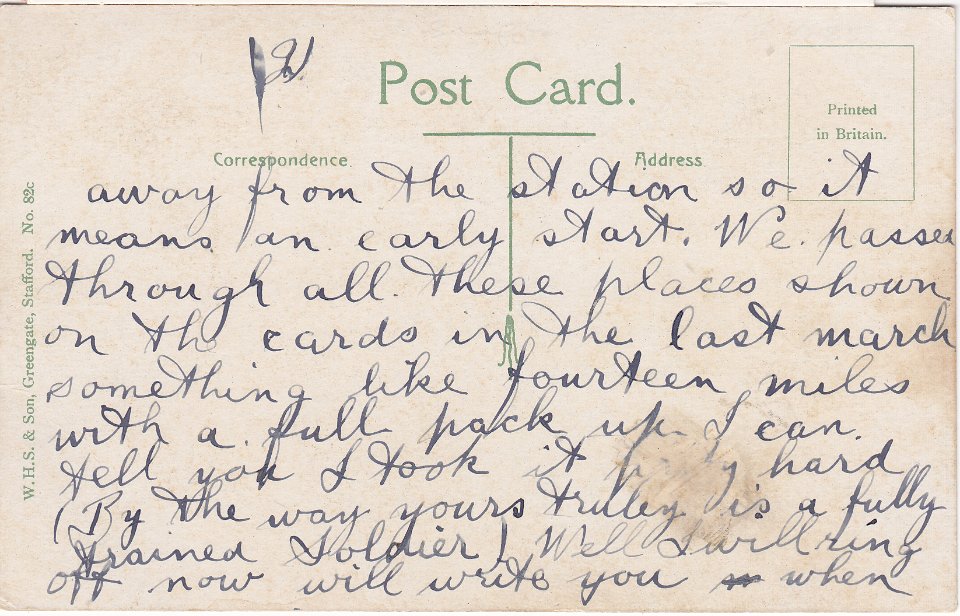 2/
Post Card.
Printed
in Britain.
Correspondence.
Address
away from the station so it
means an early start. We passed
through all these places shown
on the cards in the last march
something like fourteen miles
with a full pack up I can
tell you I took it hard
(By the way yours truley is a fully
trained Soldier) Well I will ring
off now will write you when
W.H.S. & Son, Greengate, Stafford. No. 82c